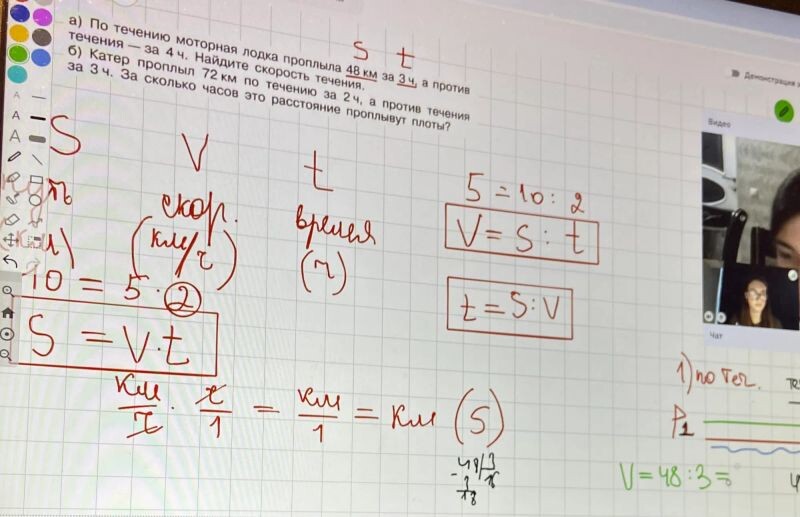 а) По течению моторная лодка проплыла 48 км за 3 ч, а против
течения — за 4 ч. Найдите скорость течения.
б) Катер проплыл 72 км по течению за 2 ч, а против течения
за 3 ч. За сколько часов это расстояние проплывут плоты?
S t
S V t
скор. время
(км/ч) (ч)
10 = 5 · 2
S = V · t
5 = 10 : 2
V = S : t
t = S : V
км/ч · ч/1 = км/1 = км (S)
48 3
- 3
18
Демонстрация
Видео
Чат
1) по теч.
P1
V = 48 : 3 =